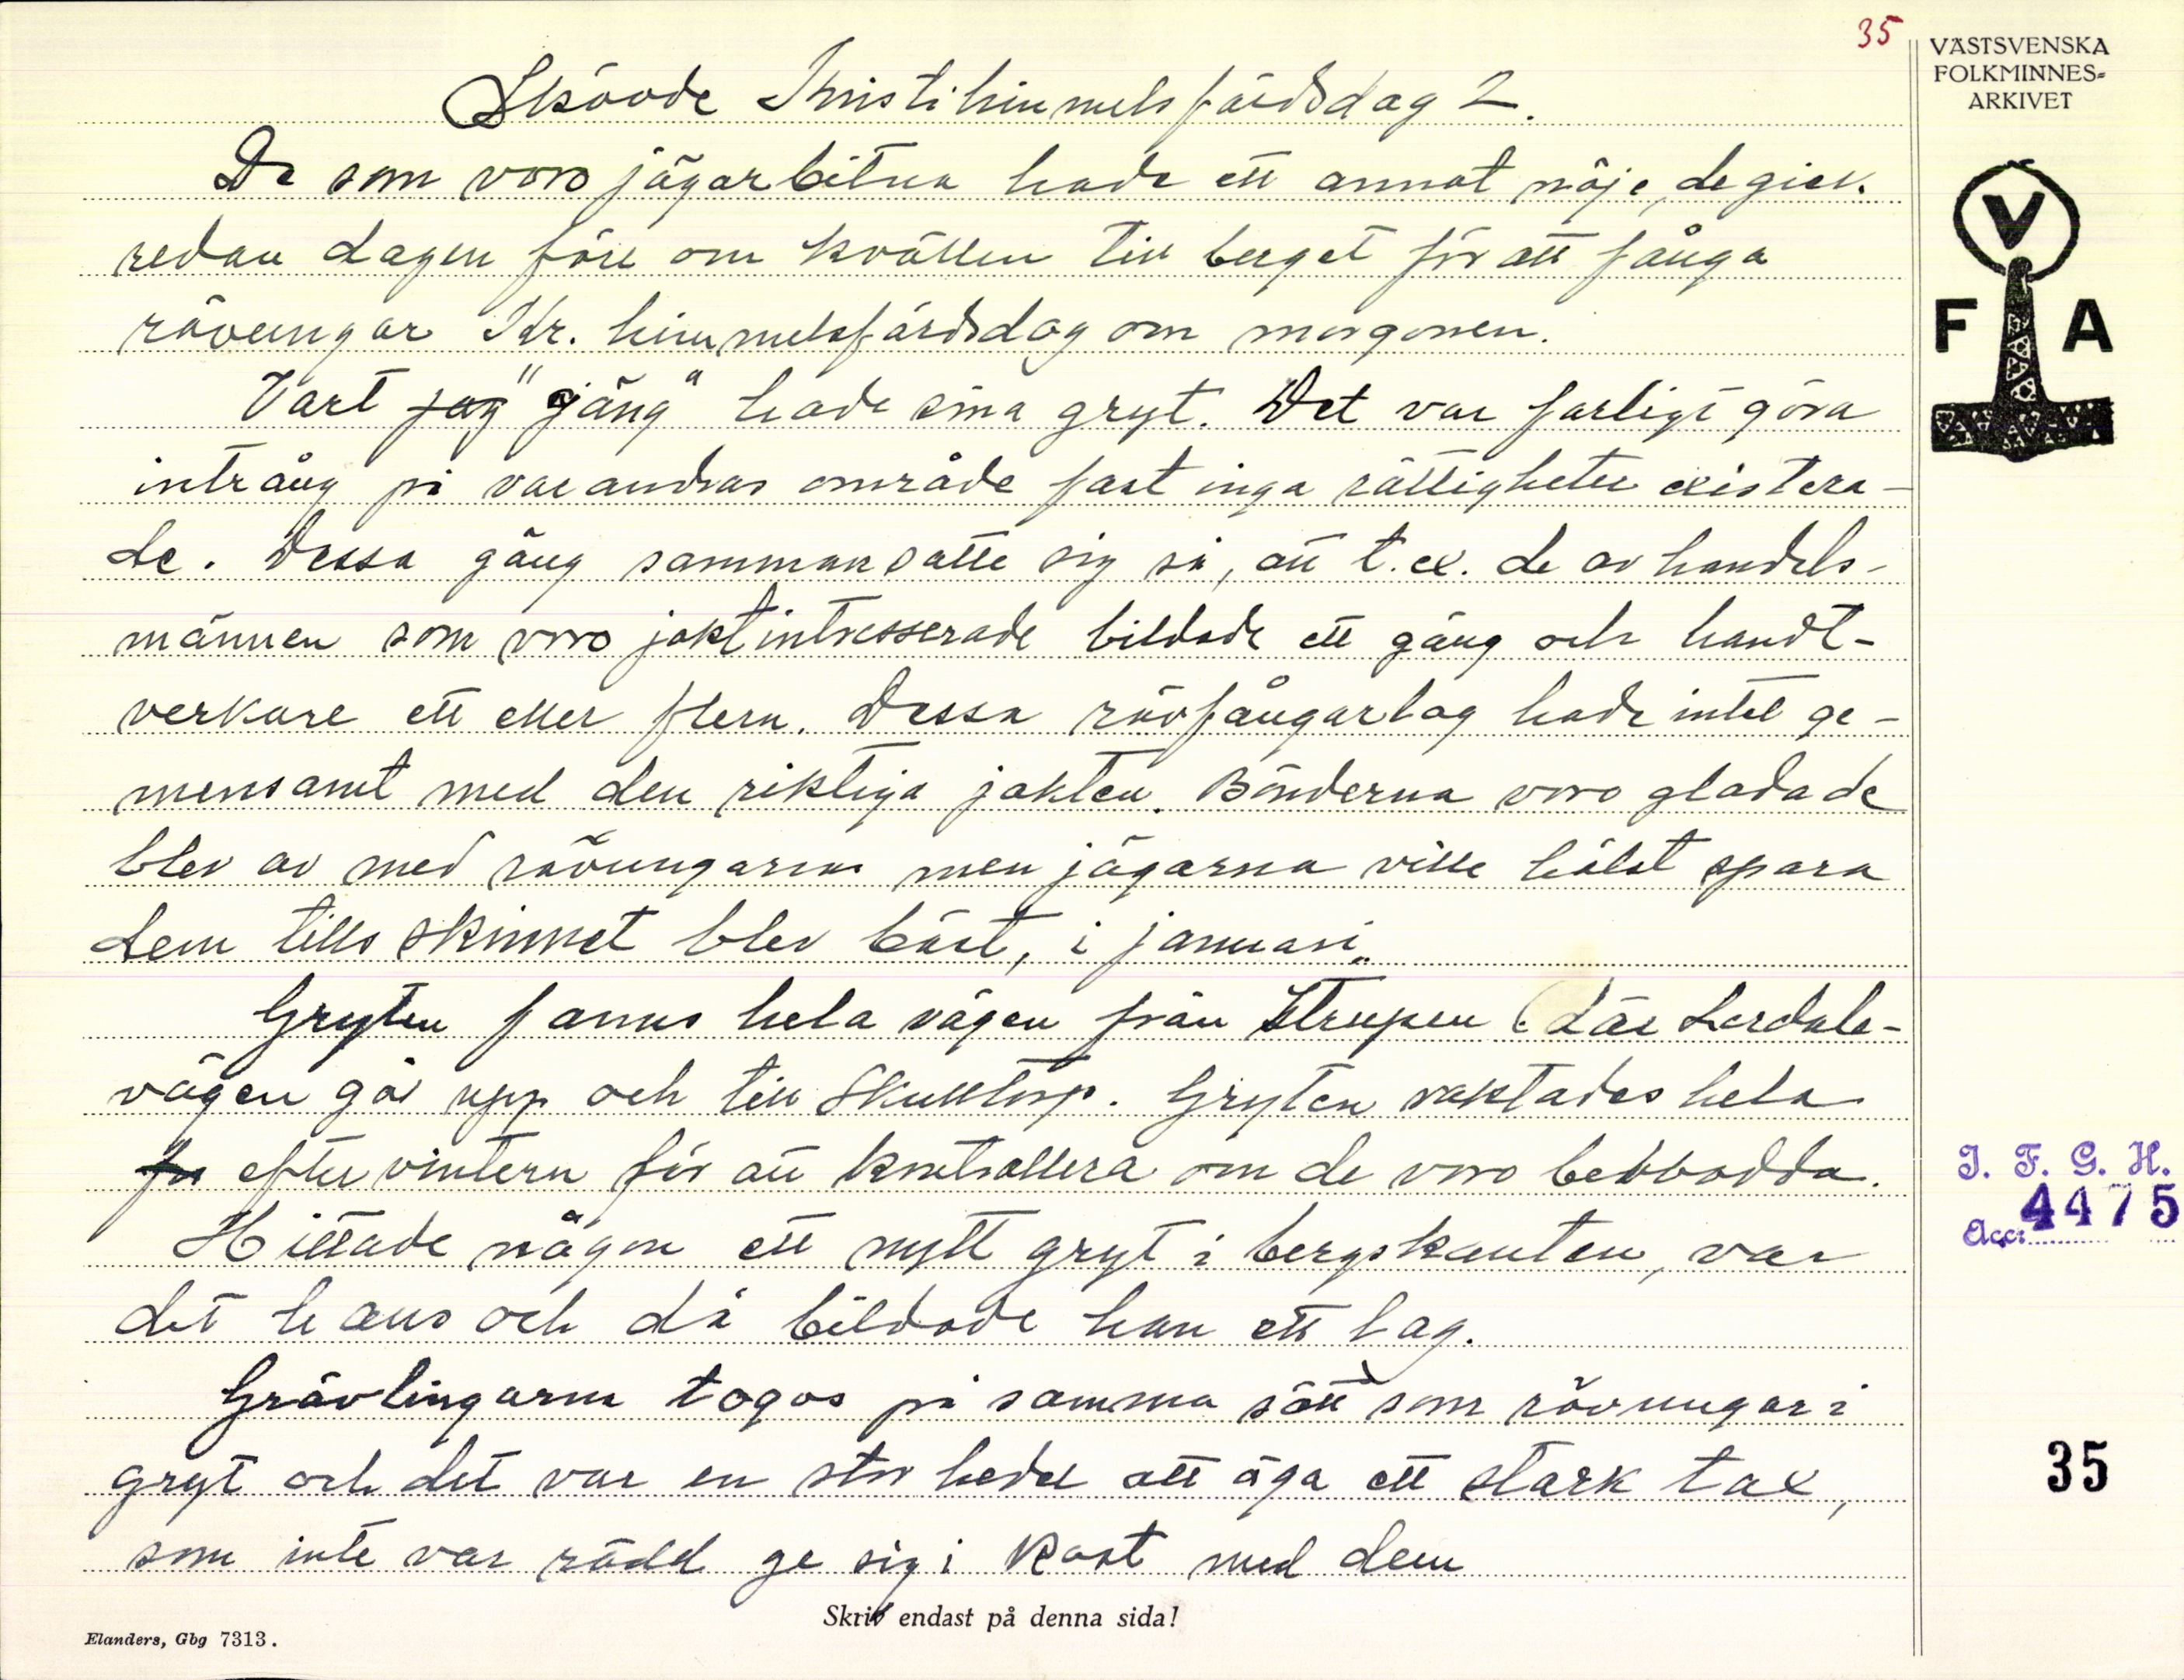 35
VÄSTSVENSKA
FOLKMINNES-
ARKIVET
Skövde Kristihimmelsfärdsdag 2.
De som voro jägarbitna hade ett annat nöje, de gick
redan dagen före om kvällen till berget för att fånga
rävungar Kr. himmelsfärdsdag om morgonen.
Vart jag "gäng" hade sina gryt. Det var farligt göra
intrång på varandras område fast inga rättigheter existera-
de. Dessa gäng sammansatte sig så, att t.ex. de av handels-
männen som voro jaktintresserade bildade ett gäng och handt-
verkare ett eller flera. Dessa rävfångarlag hade intet ge-
mensamt med den riktiga jakten. Bönderna voro glada de
blev av med rävungarna men jägarna ville hälst spara
dem tills skinnet blev bäst, i januari.
Gryten fanns hela vägen från Strupen (där Lerdala-
vägen går upp och till Skultorp. Gryten vaktades hela
för eftervintern för att kontrollera om de voro bebbodda.
Hittade någon ett nytt gryt i bergskanten, var
det hans och då bildade han ett lag.
Grävlingarna togos på samma sätt som rävungar i
gryt och det var en stor heder att äga ett stark tax,
som inte var rädd ge sig i kast med dem
V
F A
I. F. G. H.
Acc: 4475
35
Skriv endast på denna sida!
Elanders, Gbg 7313.